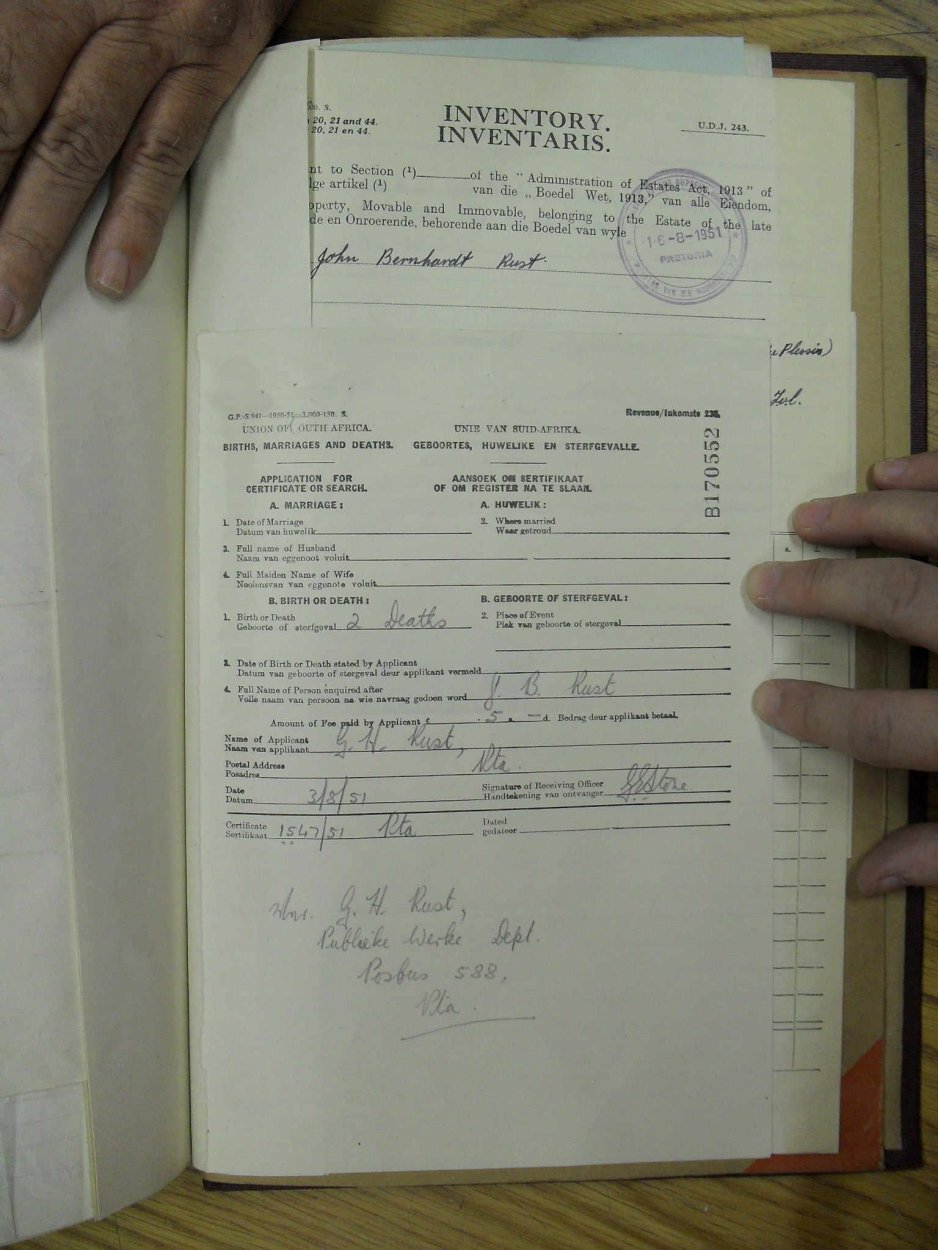 20, 21 and 44.
20, 21 en 44.
INVENTORY.
INVENTARIS.
U.D.J. 243.
nt to Section (¹) of the "Administration of Estates Act, 1913" of
lge artikel (¹) van die „Boedel Wet, 1913," van alle Eiendom,
operty, Movable and Immovable, belonging to the Estate of the late
de en Onroerende, behorende aan die Boedel van wyle
16-8-1951
PRETORIA
John Bernhardt Rust.
Plessis)
Tvl.
s. d.
G.P.-S.941—1950-51—1,000-150. S.
Revenue/Inkomste 238.
UNION OF OUTH AFRICA.
UNIE VAN SUID-AFRIKA.
BIRTHS, MARRIAGES AND DEATHS.
GEBOORTES, HUWELIKE EN STERFGEVALLE.
B170552
APPLICATION FOR
CERTIFICATE OR SEARCH.
AANSOEK OM SERTIFIKAAT
OF OM REGISTER NA TE SLAAN.
A. MARRIAGE:
A. HUWELIK:
1. Date of Marriage
Datum van huwelik
2. Where married
Waar getroud
3. Full name of Husband
Naam van eggenoot voluit
4. Full Maiden Name of Wife
Nooiensvan van eggenote voluit
B. BIRTH OR DEATH:
B. GEBOORTE OF STERFGEVAL:
1. Birth or Death
Geboorte of sterfgeval 2 Deaths
2. Place of Event
Plek van geboorte of stergeval
3. Date of Birth or Death stated by Applicant
Datum van geboorte of stergeval deur applikant vermeld
4. Full Name of Person enquired after
Volle naam van persoon na wie navraag gedoen word J. B. Rust
Amount of Fee paid by Applicant £ . 5 . —d. Bedrag deur applikant betaal.
Name of Applicant
Naam van applikant G. H. Rust,
Postal Address
Posadres Pta.
Date
Datum 3/8/51
Signature of Receiving Officer
Handtekening van ontvanger GEStone
Certificate
Sertifikaat 1547/51 Pta
Dated
gedateer
Mnr. G. H. Rust,
Publieke Werke Dept.
Posbus 588,
Pta.